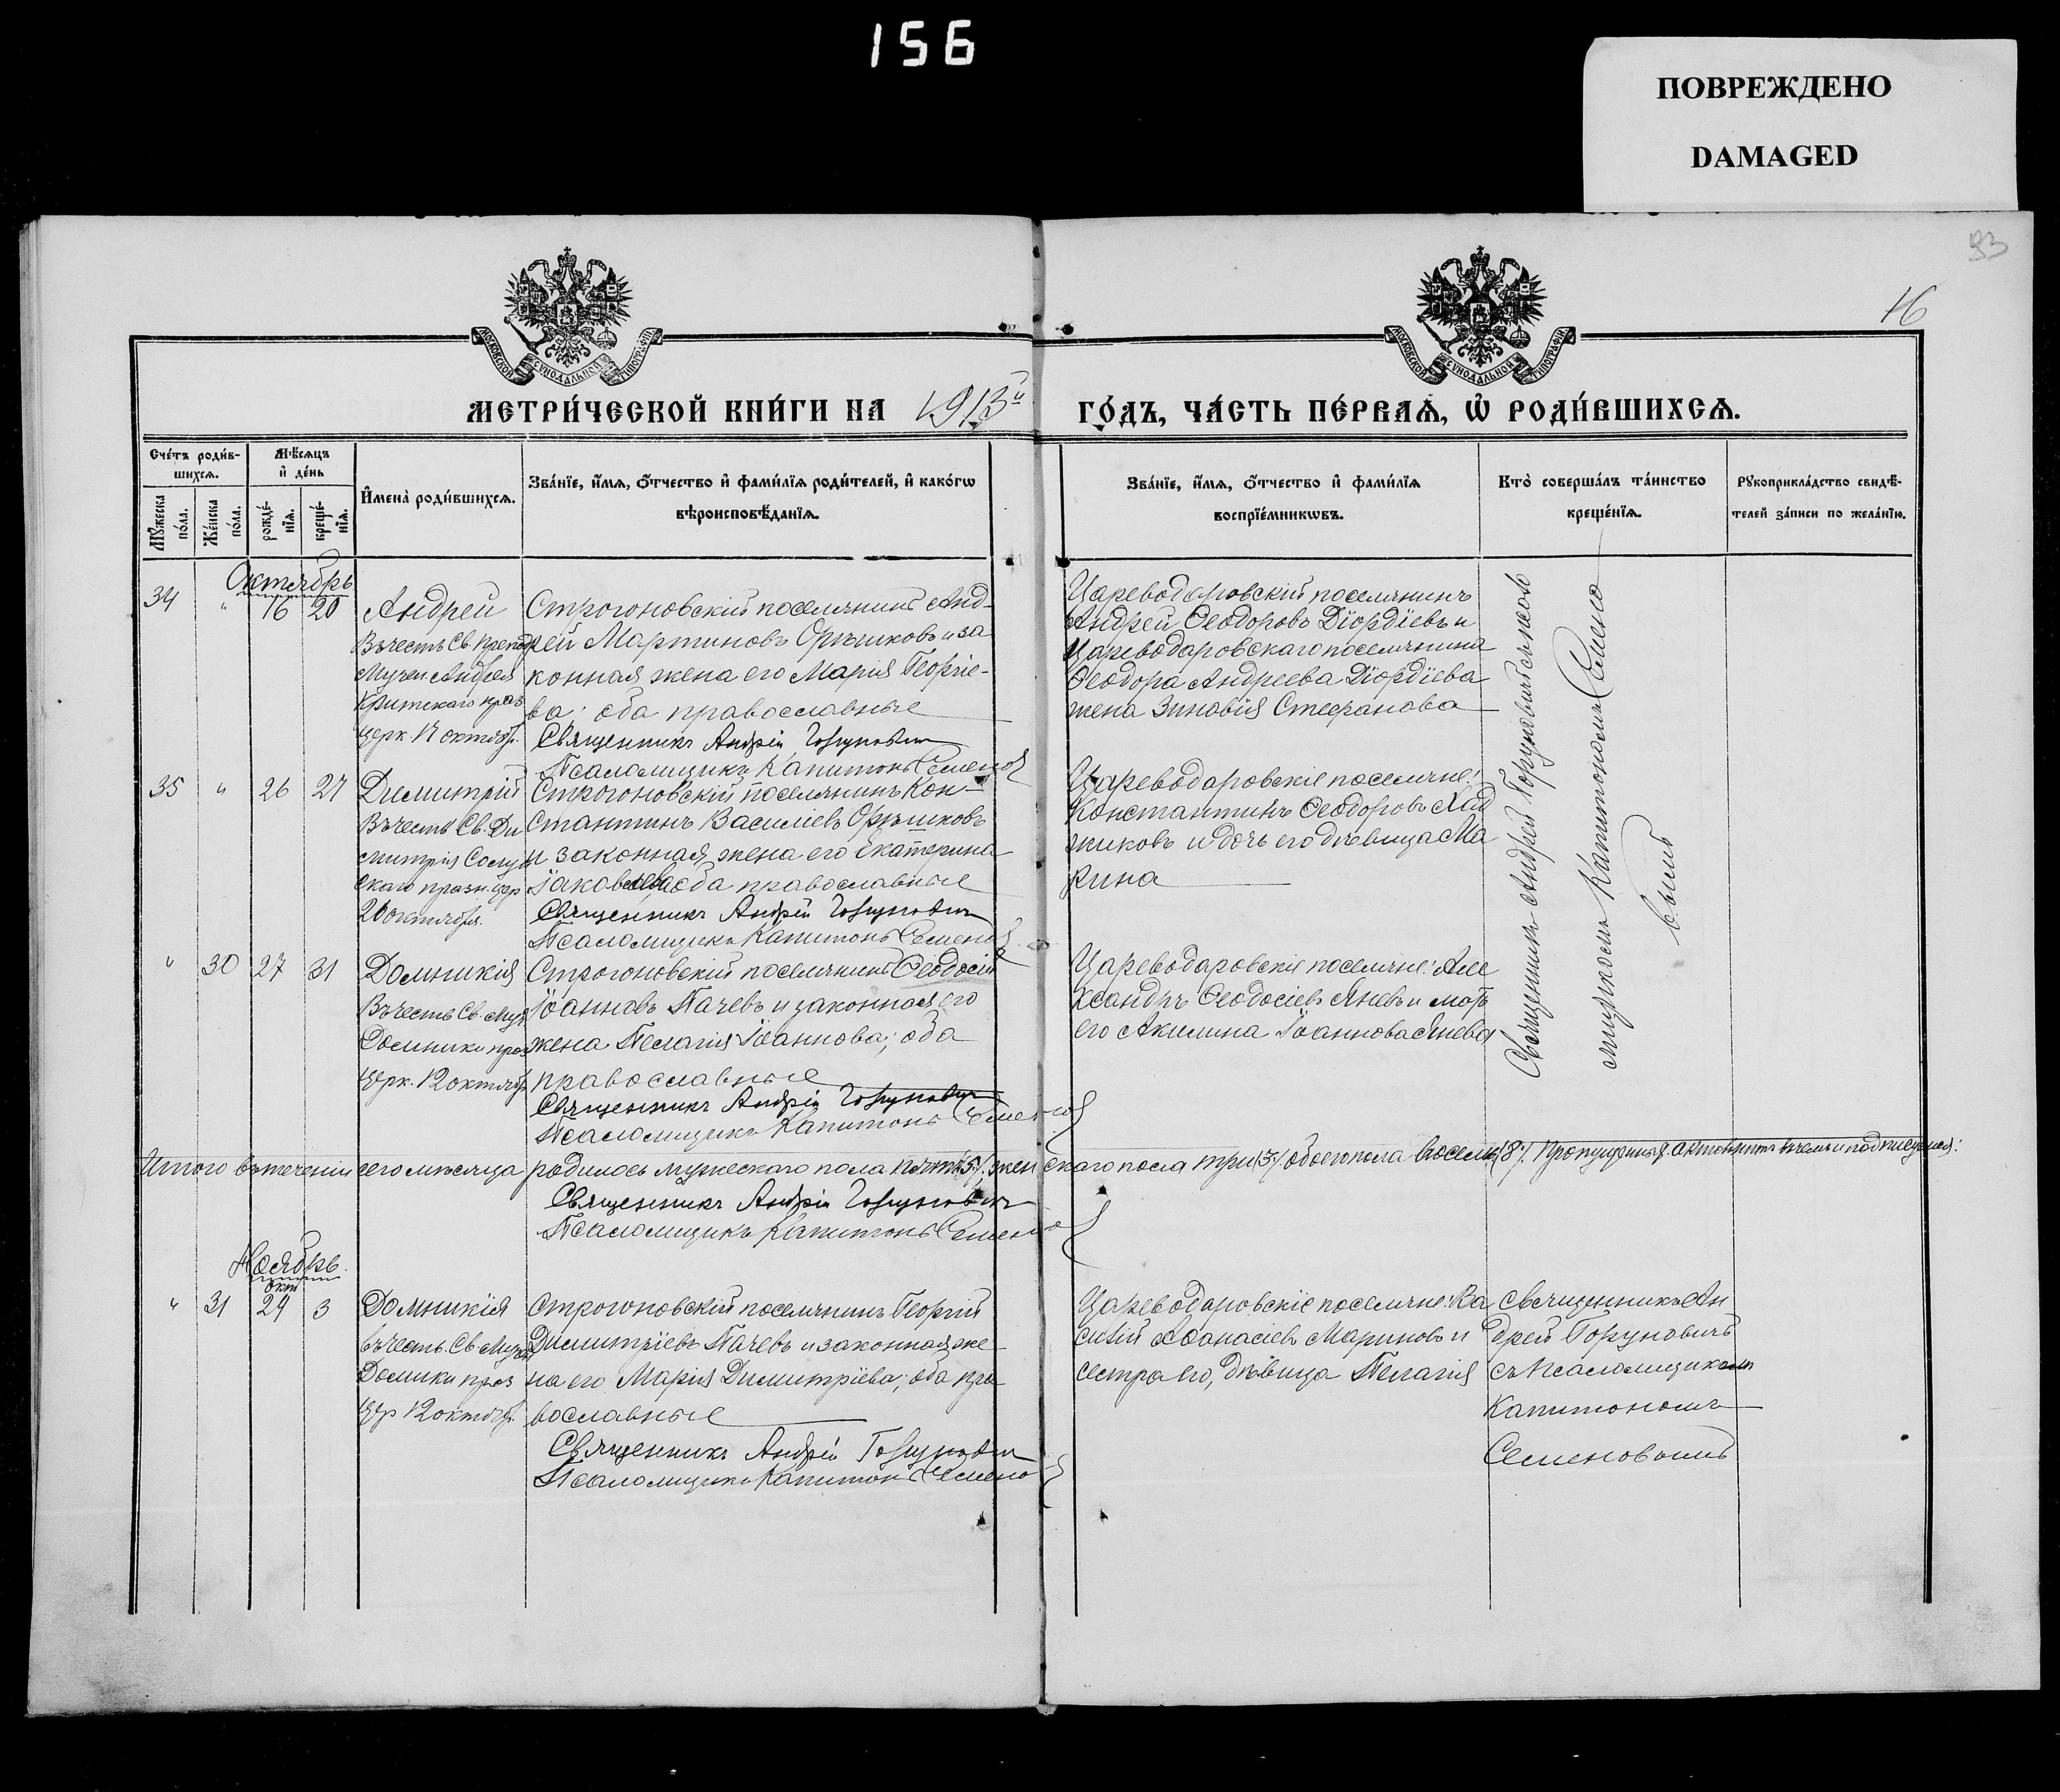 156
ПОВРЕЖДЕНО
DAMAGED
93
16
МОСКОВСКОЙ СѴНОДАЛЬНОЙ ТИПОГРАФІИ
МОСКОВСКОЙ СѴНОДАЛЬНОЙ ТИПОГРАФІИ
МЕТРИ́ЧЕСКОЙ КНИ́ГИ НА 1913й ГО́ДЪ, ЧА́СТЬ ПЕ́РВАѦ, Ѽ РОДИ́ВШИХСѦ.
Сче́тъ роди́в-
шихсѧ.
Мꙋ́жеска
по́ла.
Же́нска
по́ла.
Мѣ́сѧцъ
и҆ де́нь
рожде́-
нїѧ.
креще́-
нїѧ.
И҆мена̀ роди́вшихсѧ.
Зва́нїе, и҆́мѧ, ѻ҆́тчество и҆ фами́лїѧ роди́телей, и҆ како́гѡ
вѣроисповѣ́данїѧ.
Зва́нїе, и҆́мѧ, ѻ҆́тчество и҆ фами́лїѧ
воспрїе́мникѡвъ.
Кто̀ соверша́лъ та́инство
креще́нїѧ.
Рꙋкоприкла́дство свидѣ́-
телей за́писи по жела́нїю.
Октябрь
34 " 16 20
Андрей
Въ честь Св. Препод
Мучен. Андрея
Критскаго праз
церк. 17 октябр.
Строгоновскій поселянинъ Анд-
рей Мартиновъ Орѣшковъ и за
конная жена его Марія Георгіе-
ва; оба православные
Священникъ Андрей Горуновичъ
Псаломщикъ Капитонъ Семенов
Цареводаровскій поселянинъ
Андрей Ѳеодоровъ Діордіевъ и
Цареводаровскаго поселянина
Ѳеодора Андреева Діордіева
жена Зиновія Стефанова
35 " 26 27
Димитрій
Въ честь Св. Ди
митрія Солун
скаго празн. цер
26 октября.
Строгоновскій поселянинъ Кон-
стантинъ Василіевъ Орѣшковъ
и законная жена его Екатерина
Іаковлева оба православные
Священникъ Андрей Горуновичъ
Псаломщикъ Капитонъ Семенов
Цареводаровскіе поселяне:
Константинъ Ѳеодоровъ Хад
жиковъ и дочь его дѣвица Ма
рина
" 30 27 31
Домникія
Въ честь Св. Муч.
Домники праз
церк. 12 октябр
Строгоновскій поселянинъ Ѳеодосій
Іоанновъ Пачевъ и законная его
жена Пелагія Іоаннова; оба
православные
Священникъ Андрей Горуновичъ
Псаломщикъ Капитонъ Семенов
Цареводаровскіе поселяне: Але
ксандръ Ѳеодосіевъ Яневъ и мать
его Акилина Іоаннова Янева
Священникъ Андрей Горуновичъ съ псало
мщикомъ Капитономъ Семено
вымъ
Итого въ теченіи сего мѣсяца родилось мужескаго пола пять /5/, жен скаго пола три /3/ обоего пола восемь /8/.
Священникъ Андрей Горуновичъ
Псаломщикъ Капитонъ Семенов
Ноябрь.
окт
" 31 29 3
Домникія
въ честь Св. Муч.
Домники праз
цер 12 октябр.
Строгоновскій поселянинъ Георгій
Димитріевъ Пачевъ и законная же
на его Марія Димитріева; оба пра
вославные
Священникъ Андрей Горуновичъ
Псаломщикъ Капитонъ Семенов
Цареводаровскіе поселяне: Ва
силій Аѳанасіевъ Мариновъ и
сестра его, дѣвица Пелагія
Священникъ Ан
дрей Горуновичъ
съ Псаломщикомъ
Капитономъ
Семеновымъ